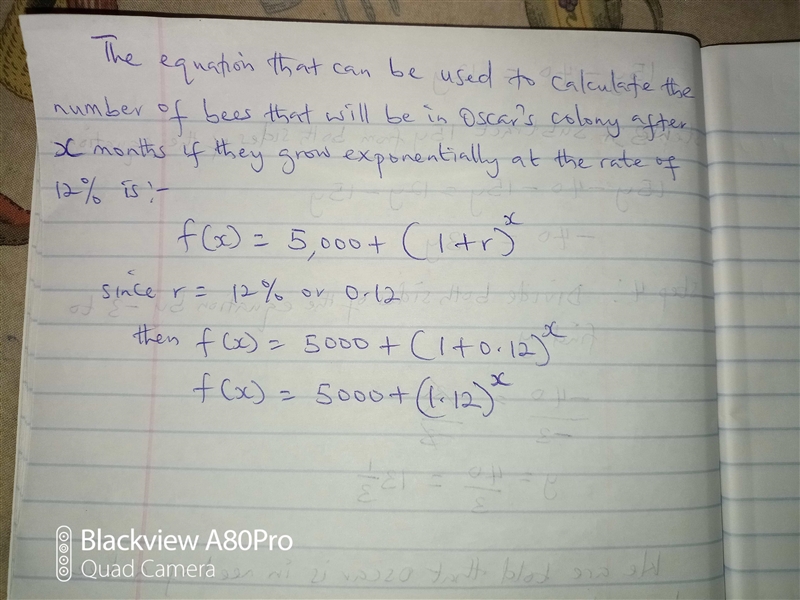 The equation that can be used to calculate the
number of bees that will be in Oscar's colony after
x months if they grow exponentially at the rate of
12% is:-
f(x) = 5,000 + (1+r)^x
since r = 12% or 0.12
then f(x) = 5000 + (1+0.12)^x
f(x) = 5000 + (1.12)^x
Blackview A80Pro
Quad Camera